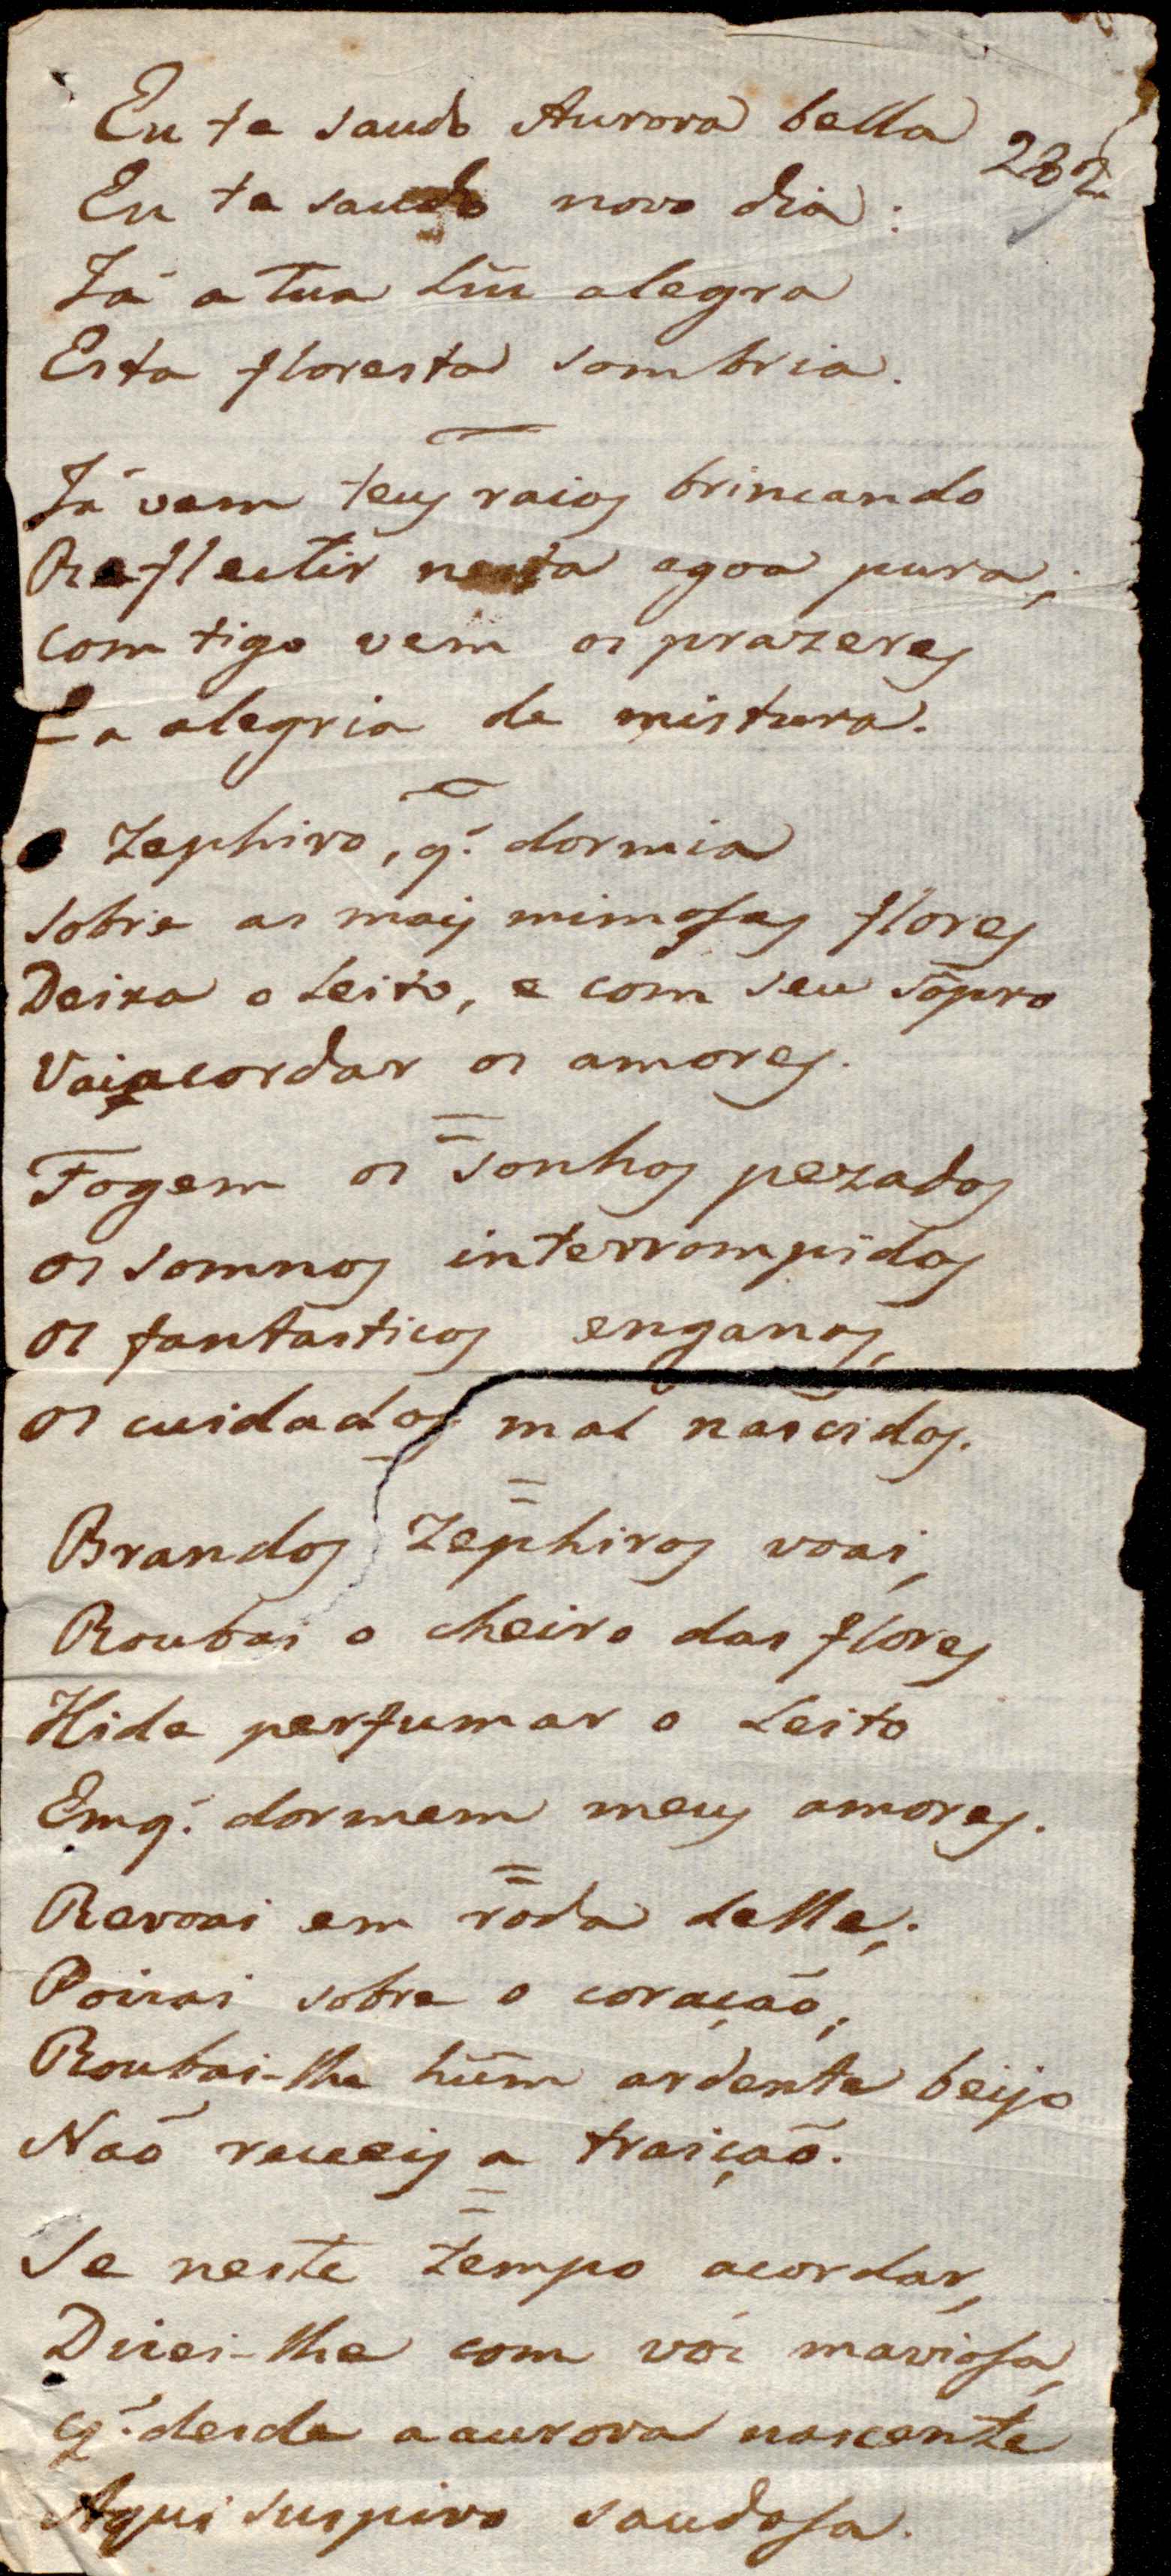 Eu te saudo Aurora bella
282
Eu te saudo novo dia:
Já a tua lũz alegra
Esta floresta sombria.
Já vem teus raios brincando
Reflectir nesta agoa pura;
com tigo vem os prazeres
E a alegria de mistura.
O Zephiro, q.' dormia
sobre as mais mimosas flores
Deixa o leito, e com seu sôpro
Vai acordar os amores.
Fogem os sonhos pezados
os somnos interrompidos
os fantasticos enganos,
os cuidados mal nascidos.
Brandos Zephiros voai,
Roubai o cheiro das flores
Hide perfumar o leito
Emq.' dormem meus amores.
Revoai em roda delle;
Poizai sobre o coração,
Roubai-lhe hũm ardente beijo
Naõ receeis a traiçaõ.
Se neste tempo acordar,
Dizei-lhe com vóz maviosa,
Q.' desde a aurora nascente
Aqui suspiro saudosa.